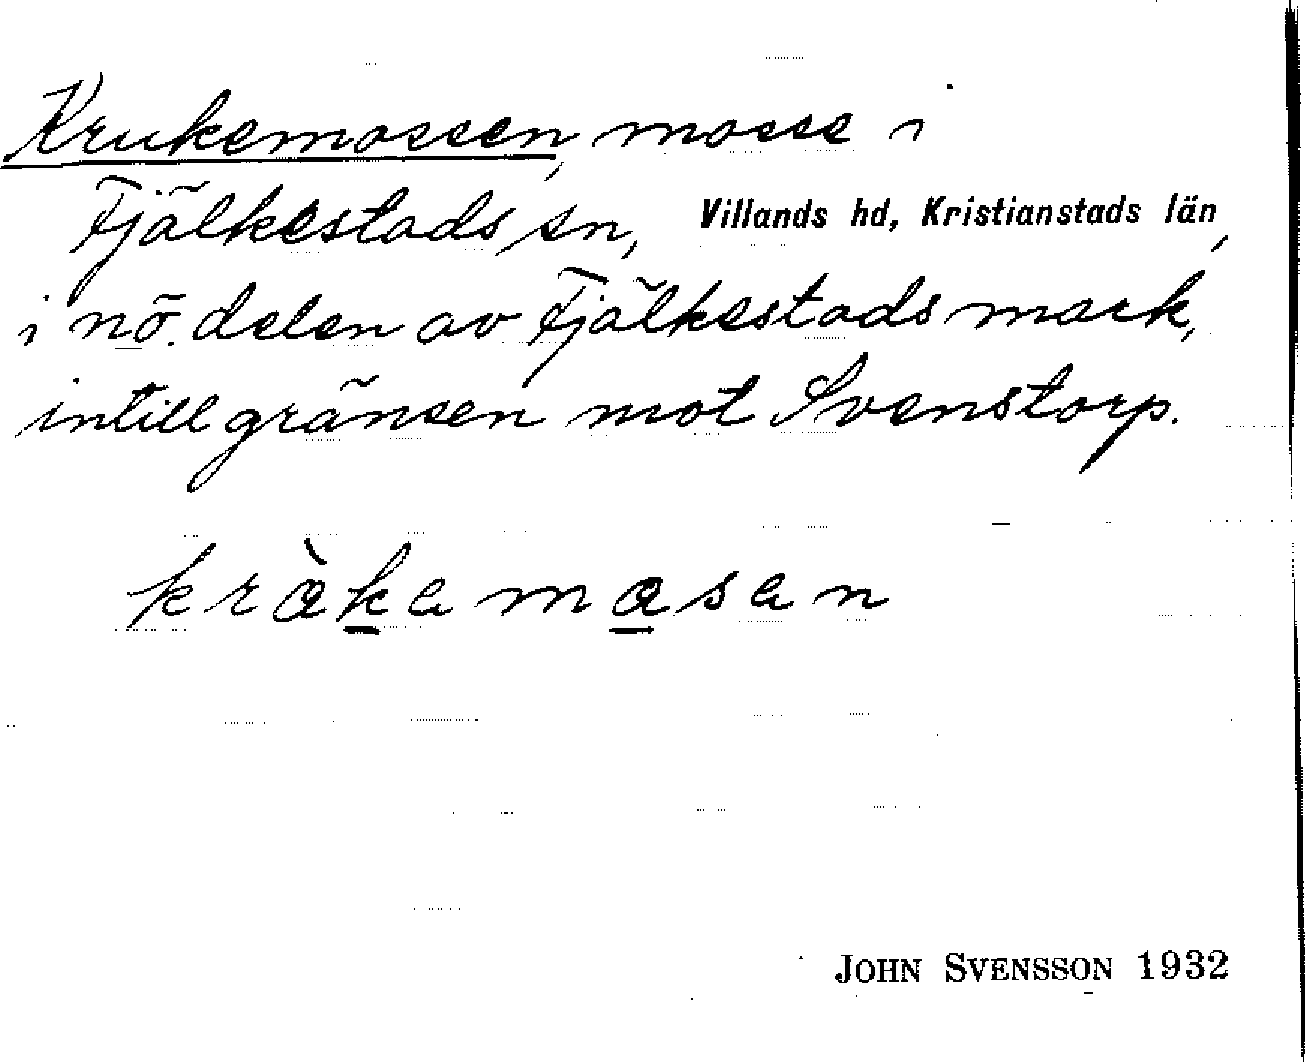 Krukemossen, mosse i
Fjälkestads sn, Villands hd, Kristianstads län,
i nö. delen av Fjälkestads mark,
intill gränsen mot Svenstorp.
kràkamasan
JOHN SVENSSON 1932